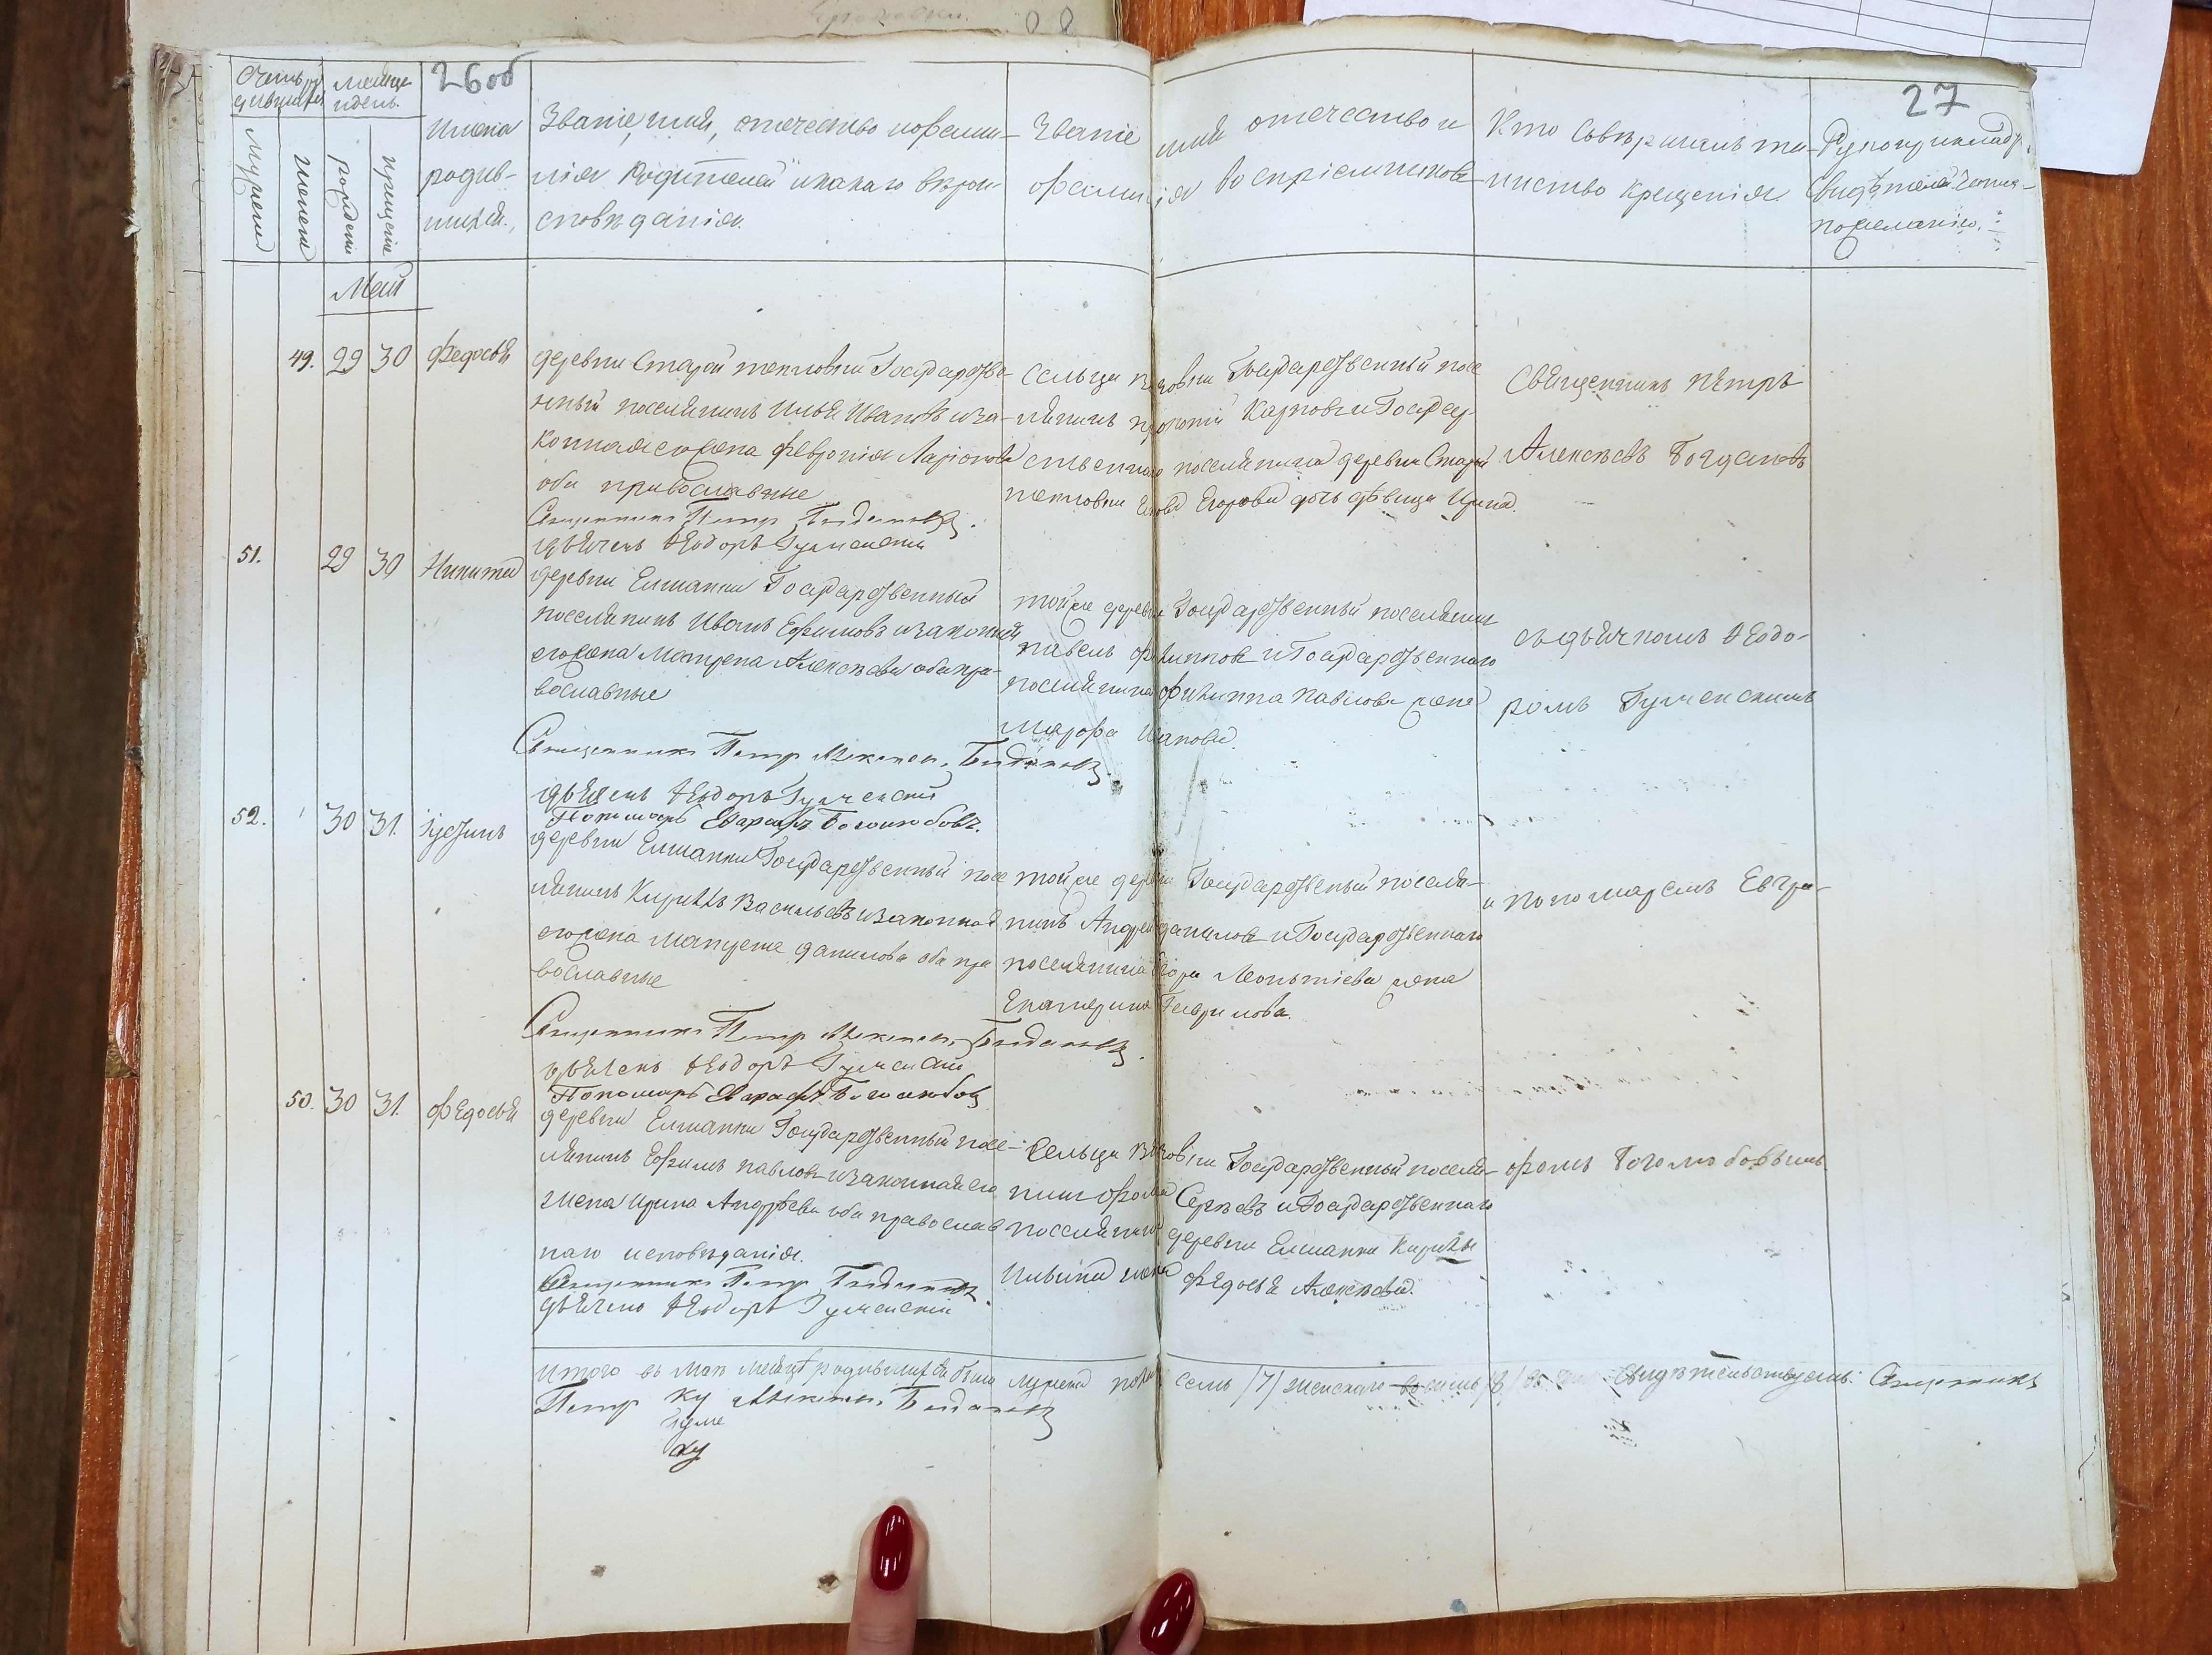 26об
27
Счетъ родившихся
Месяцъ и день.
Мужеска
Женска
рождения
крещения
Имена родив-
шихся.
Званіе, имя, отечество и фами-
лія Родителей и какаго вѣрои-
споведанія.
Званіе имя отечество и
фамилія воспріемниковъ
Кто совершалъ та-
инство крещенія
Рукоприкладство
свидѣтелей
по желанію.
Май
49. 29 30 Федосья
деревни Старой тепловки Государстве-
нный поселянинъ Илья Ивановъ и за-
конная его жена Феврония Ларіонова
оба православные
Священникъ Петр Богдановъ.
дьячекъ Ѳеодоръ Гуменскій
сельца Государственный посе-
лянинъ Карповъ и Государ-
ственнаго поселянина деревни Старой
тепловки Егорова дочь дѣвица Ирина.
Священникъ Петръ
Алексѣевъ Богдановъ
51. 29 30 Никита
деревни Елшанки Государственный
поселянинъ Иванъ Ефимовъ и законная
его жена Матрена Алексѣева оба пра-
вославные
Священникъ Петр Алексеев Богдановъ.
дьячекъ Ѳеодоръ Гуменскій
Пономарь Евграфъ Боголюбовъ.
той же деревни Государственный поселянинъ
павелъ филиппов и Государственнаго
поселянина филиппа павлова жена
Марфа Иванова.
съ дьячкомъ Ѳеодо-
ромъ Гуменскимъ
52. 30 31. Іустинъ
деревни Елшанки Государственный посе
лянинъ Кирилъ Васильевъ и законная
его жена данилова оба пра
вославные
Священникъ Петр Алексеев Богдановъ.
дьячекъ Ѳеодоръ Гуменскій
Пономарь Евграфъ Боголюбов
той же деревни Государственный поселя-
нинъ Андрей данилов и Государственнаго
поселянина Егора Леонтіева жена
Екатерина Гаврилова.
и пономаремъ Евгра-
50. 30 31. Федосья
деревни Елшанки Государственный посе-
лянинъ Ефимъ павлов и законная его
жена Ирина Андрѣева оба православ
наго исповѣданія.
Священникъ Петр Богдановъ
дьячекъ Ѳеодоръ Гуменскій
Сельца Государственный поселя-
нин Сергѣевъ и Государственнаго
поселянина деревни Елшанки Кирилы
Ильина жена Федосья Алексѣева.
фомъ Боголюбовымъ
Итого въ мае месяце родившихся было мужеска пола семь /7/ женскаго восемь /8/ свидѣтельствуемъ: Священникъ
Петр Алексеев Богдановъ